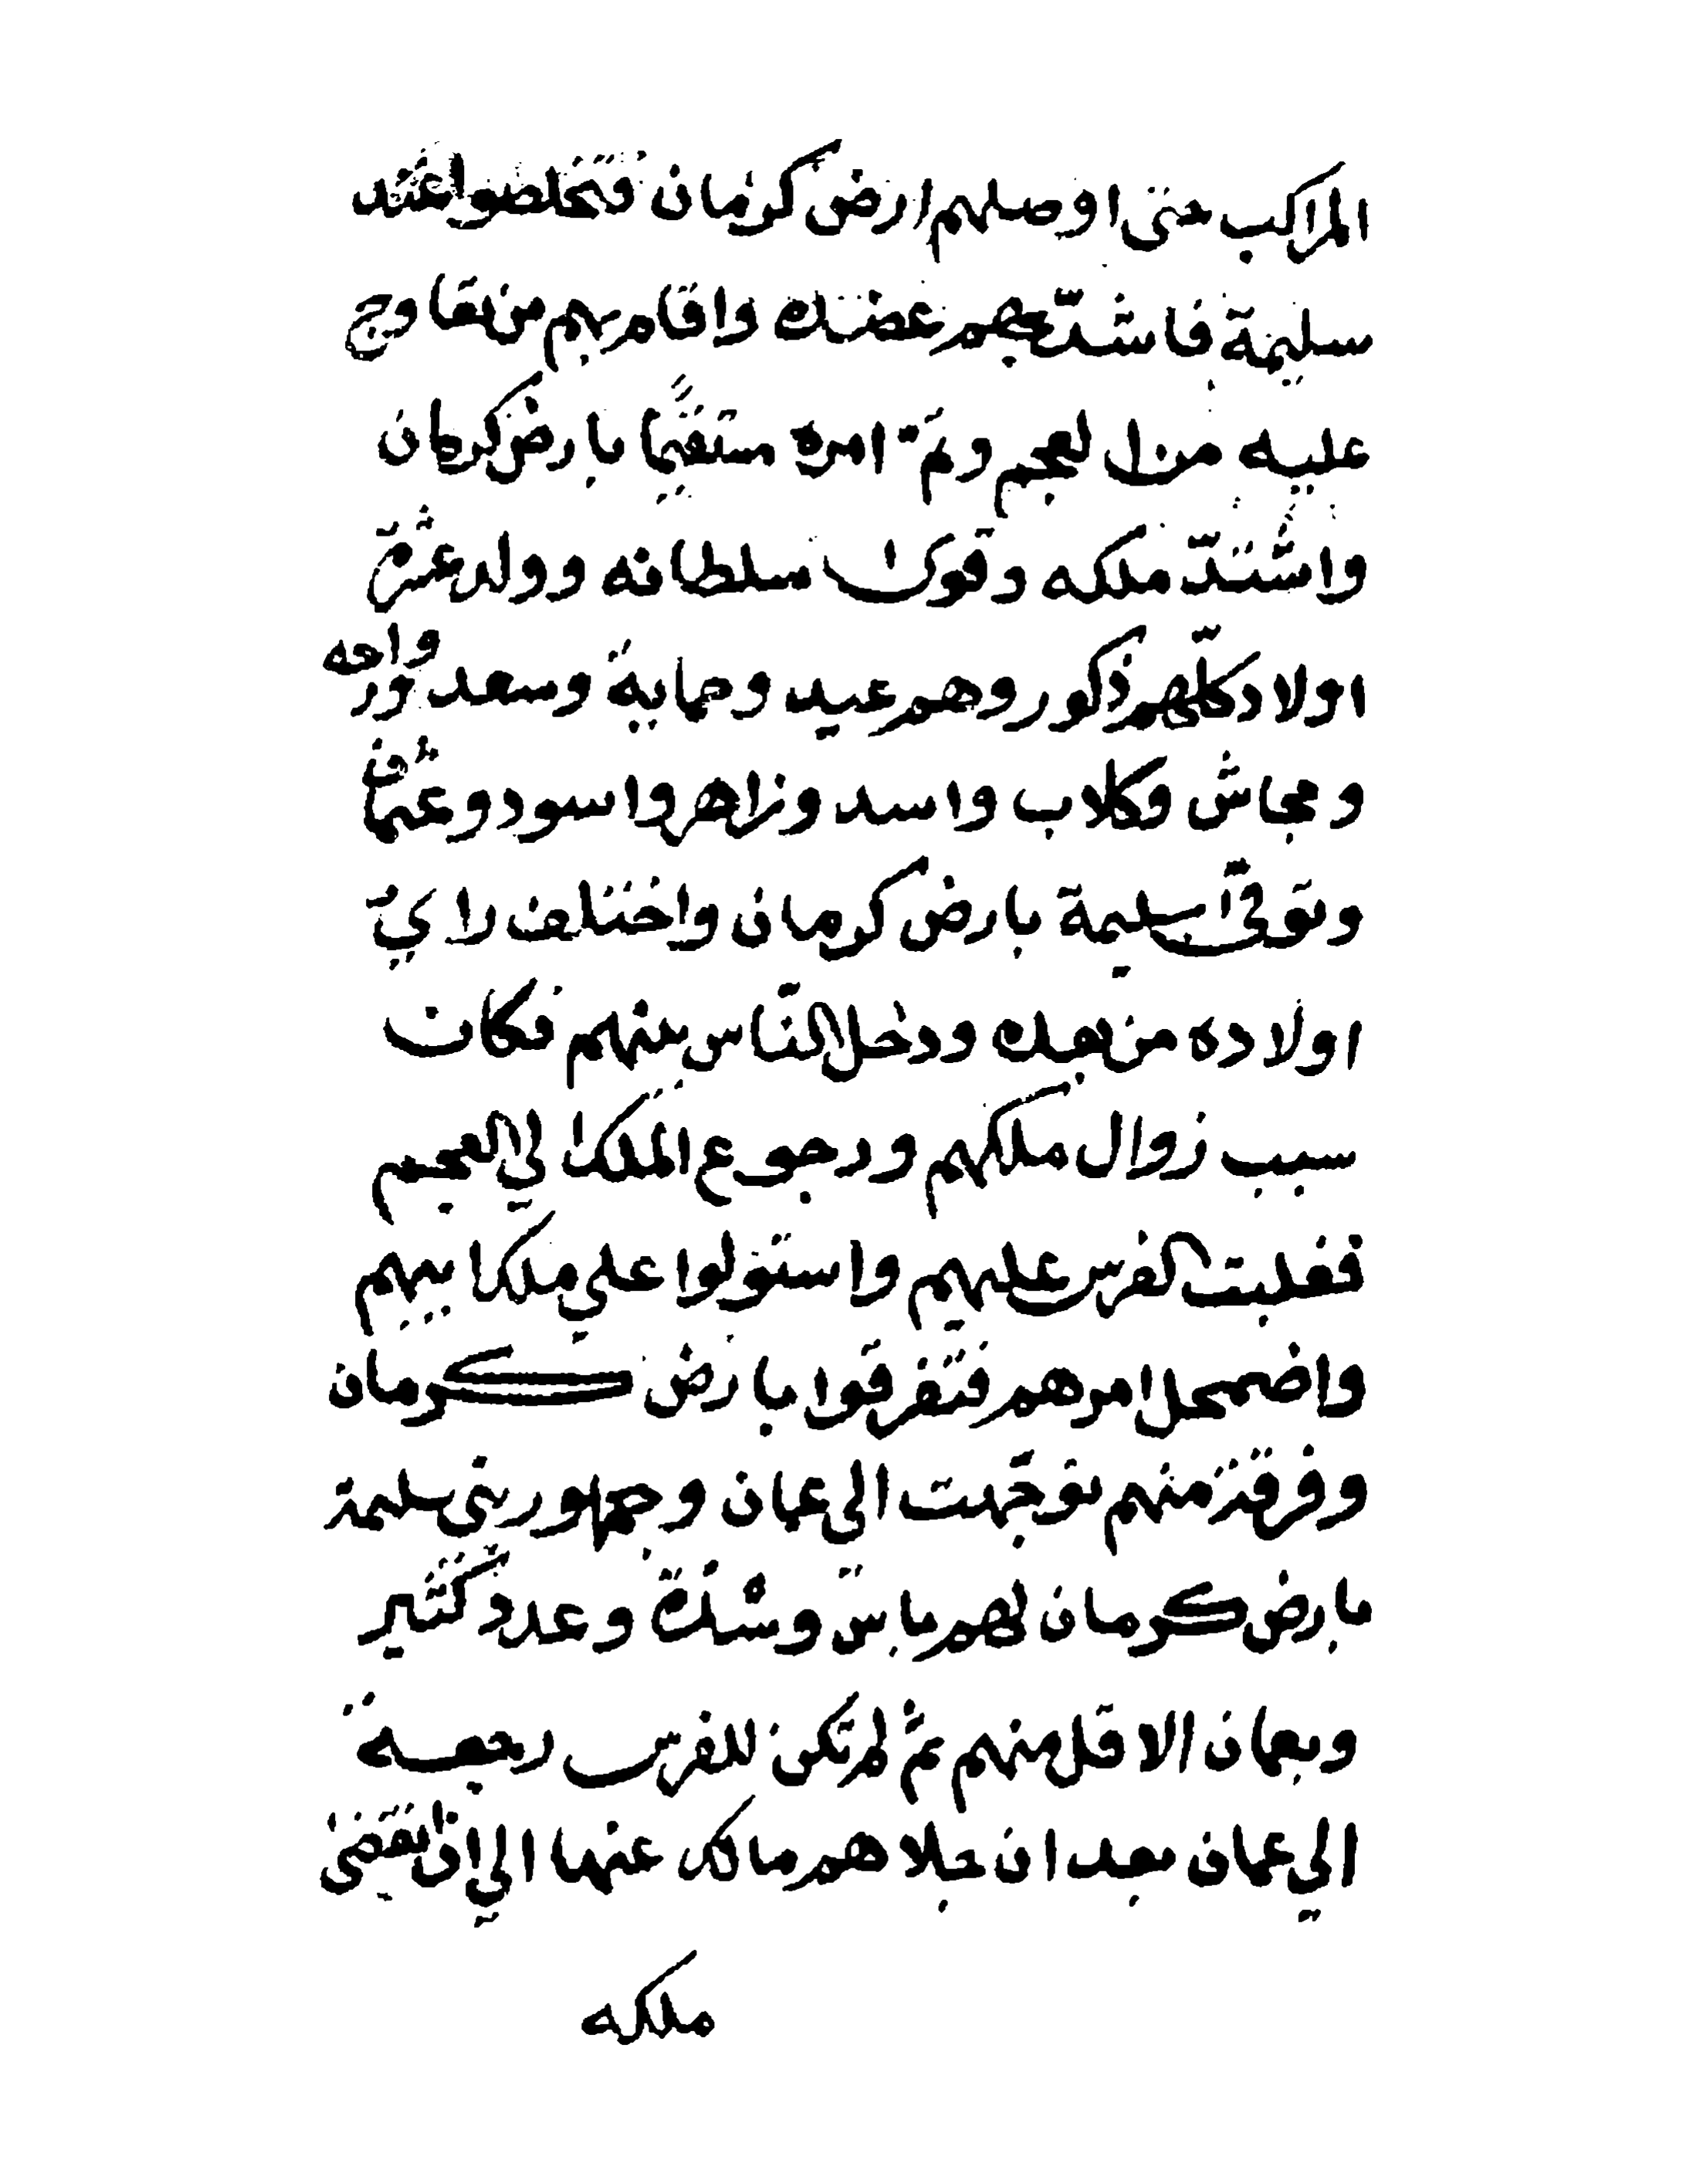 المراكب حتى اوصلهم ارض كرمان فتخلصوا عند
سليمة فاشتدّ بهم عضده واقام بهم من تعاوج
عليه من العجم وتمّ امره مستقيمًا بارض كرمان
واشتدّ ملكه وقوى سلطانه وولد عشرة
اولاد كلّهم ذكور وهم عبد وحماية وسعد ورواحه
ومجاش وكلاب واسد وزاهر واسود وعثمان
وتوفّى سليمة بارض كرمان واختلف راي
اولاده من بعده ودخل النّاس بينهم فكان
سبب زوال ملكهم ورجوع الملك الي العجم
فغلبت الفرس عليهم واستولوا علي ملك ابيهم
واضمحل امرهم فتفرقوا بارض كرمان
وفرقة منهم توجّهت الى عمان وجمهور بني سليمة
بارض كرمان لهم باس وشدّة وعدد كثير
وبعمان الاقل منهم ثمّ لم تكن للفرس رجعة
الي عمان بعد ان جلاهم مالك عنها الي ان انقضى
ملكه